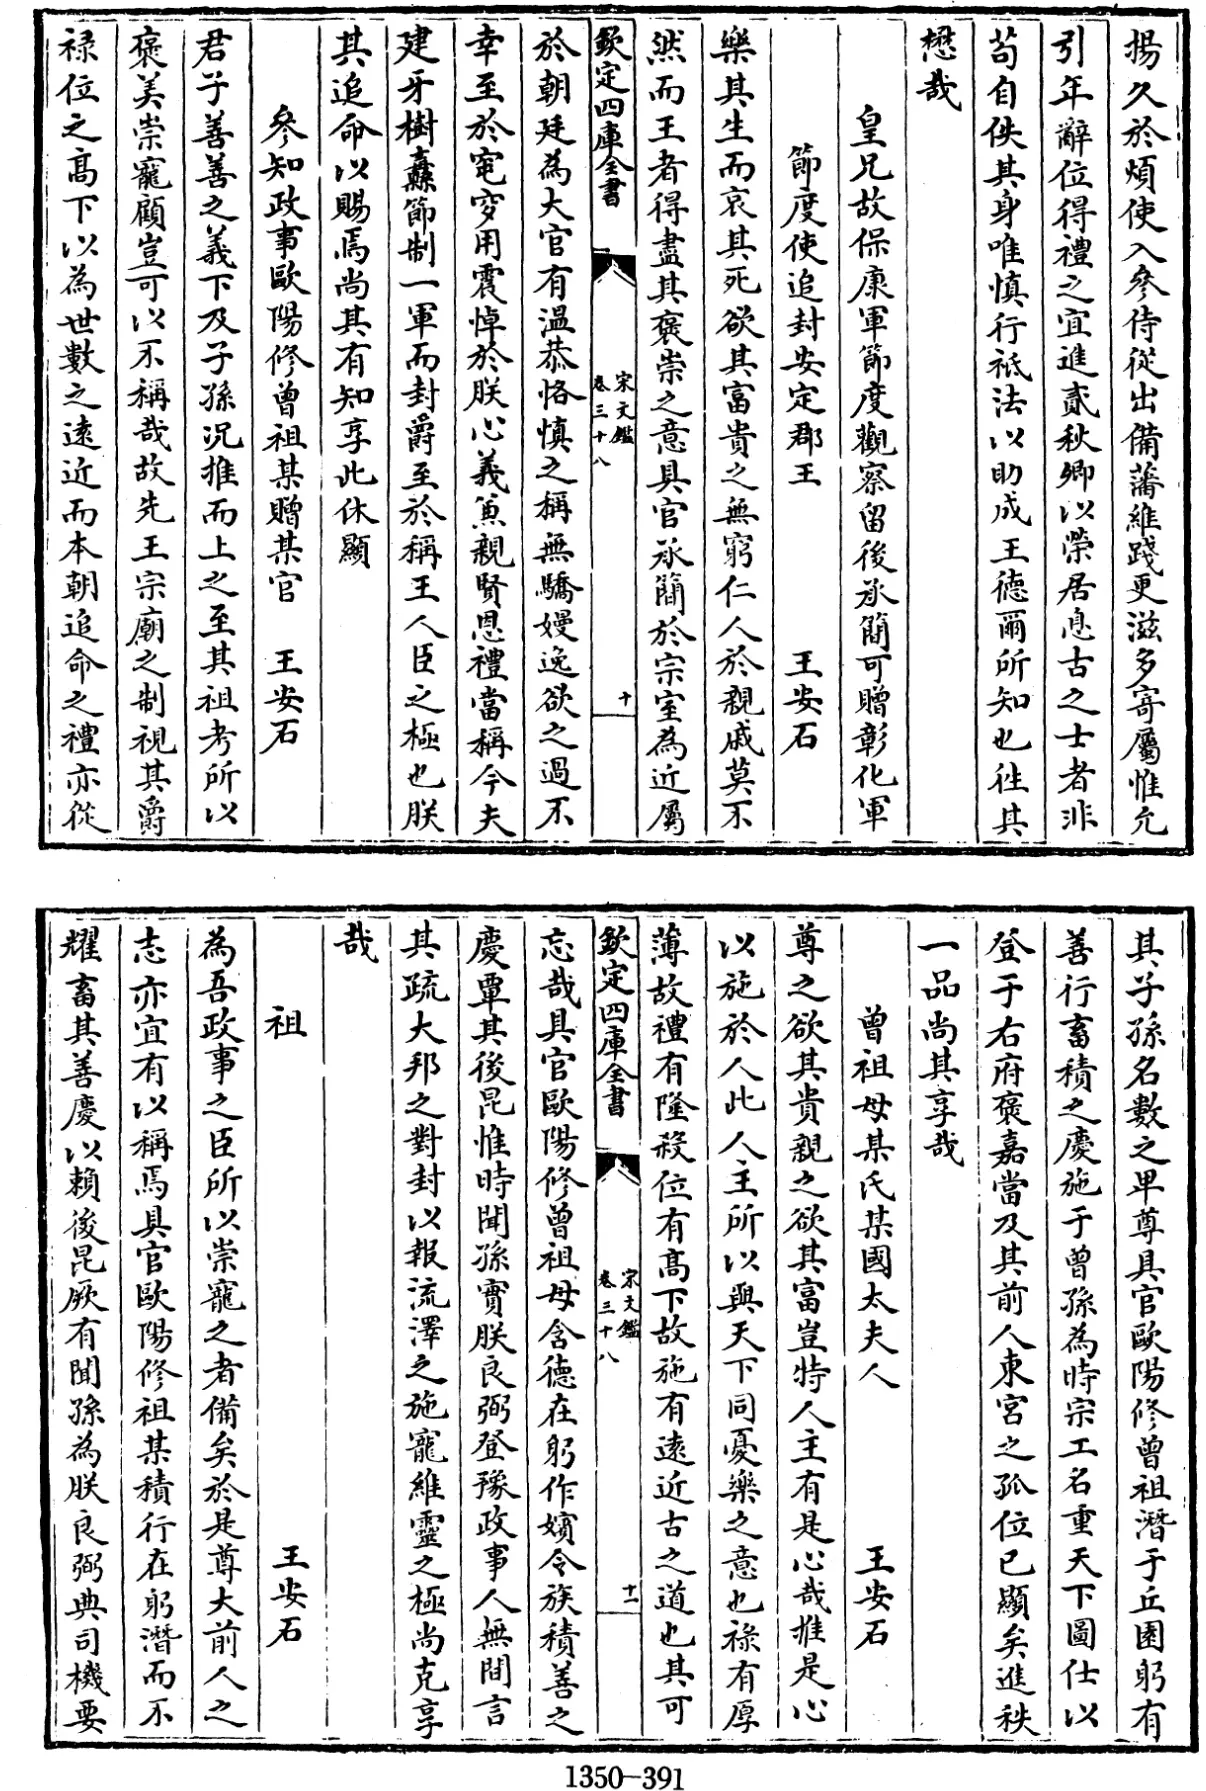 揚久於煩使入參侍從出備藩維踐更滋多寄屬惟允
引年辭位得禮之宜進貳秋卿以榮居息古之士者非
苟自佚其身唯慎行祗法以助成王德爾所知也往其
懋哉
皇兄故保康軍節度觀察留後承簡可贈彰化軍
節度使追封安定郡王 王安石
樂其生而哀其死欲其富貴之無窮仁人於親戚莫不
然而王者得盡其褒崇之意具官承簡於宗室為近屬
欽定四庫全書 宋文鑑 卷三十八 十
於朝廷為大官有温恭恪慎之稱無驕嫚逸欲之過不
幸至於窀穸用震悼於朕心義兼親賢恩禮當稱今夫
建牙樹纛節制一軍而封爵至於稱王人臣之極也朕
其追命以賜焉尚其有知享此休顯
參知政事歐陽修曾祖某贈某官 王安石
君子善善之義下及子孫况推而上之至其祖考所以
褒美崇寵顧豈可以不稱哉故先王宗廟之制視其爵
禄位之髙下以為世數之逺近而本朝追命之禮亦從
其子孫名數之卑尊具官歐陽修曾祖潛于丘園躬有
善行畜積之慶施于曾孫為時宗工名重天下圖仕以
登于右府褒嘉當及其前人東宫之孤位已顯矣進秩
一品尚其享哉
曾祖母某氏某國太夫人 王安石
尊之欲其貴親之欲其富豈特人主有是心哉推是心
以施於人此人主所以與天下同憂樂之意也禄有厚
薄故禮有隆殺位有髙下故施有逺近古之道也其可
欽定四庫全書 宋文鑑 卷三十八 十一
忘哉具官歐陽修曾祖母含德在躬作嬪令族積善之
慶覃其後昆惟時聞孫實朕良弼登豫政事人無間言
其疏大邦之對封以報流澤之施寵維靈之極尚克享
哉
祖 王安石
為吾政事之臣所以崇寵之者備矣於是尊大前人之
志亦宜有以稱焉具官歐陽修祖某積行在躬潛而不
耀畜其善慶以賴後昆厥有聞孫為朕良弼典司機要
1350-391